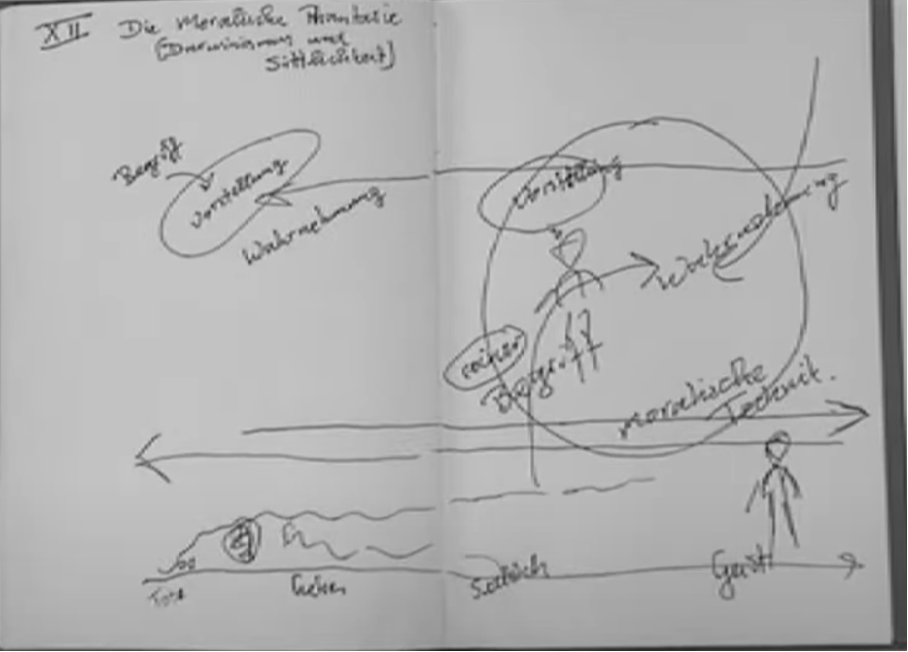 XII Die moralische Phantasie
(Darwinismus und
Sittlichkeit)
Begriff
Vorstellung
Wahrnehmung
Vorstellung
Wahrnehmung
reiner
Begriff
moralische
Technik.
Leben
Seelisch
Geist